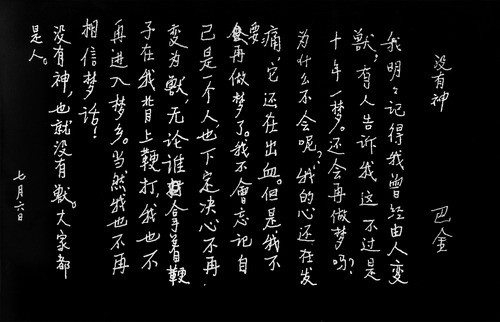 没有神　巴金
我明々记得我曾经由人变
獸，有人告诉我这不过是
十年一梦。还会再做梦吗？
为什么不会呢？我的心还在发
痛，它还在出血。但是我不
要再做梦了。我不會忘记自
己是一个人也下定决心不再
变为獸，无论谁拿着鞭
子在我背上鞭打，我也不
再进入梦乡。当然我也不再
相信梦话！
没有神，也就没有獸。大家都
是人。
七月六日